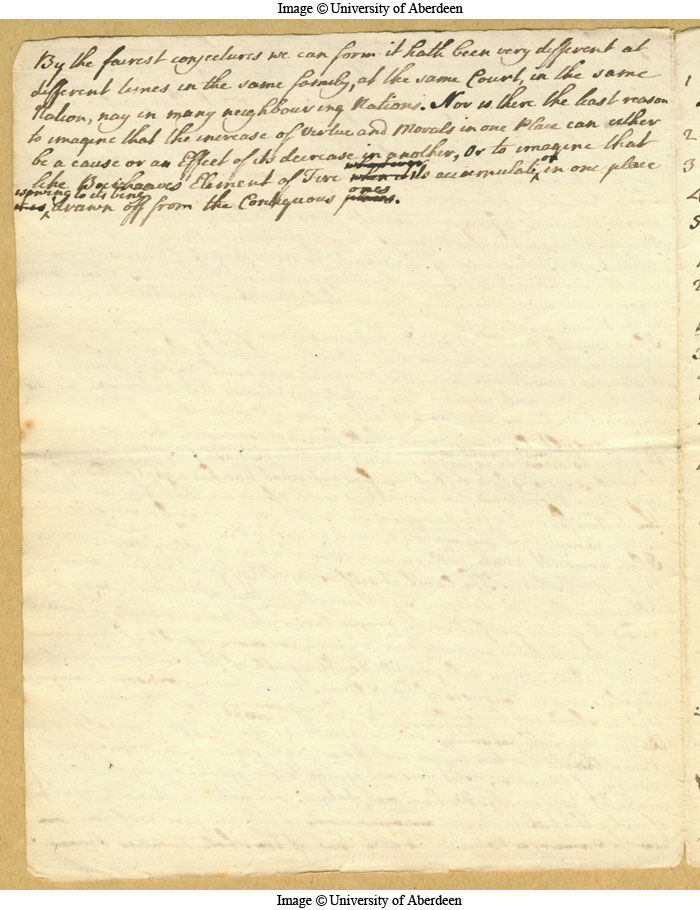 Image © University of Aberdeen
By the fairest conjectures we can form it hath been very different at
different times in the same family, at the same Court, in the same
Nation, nay in many neighbouring Nations. Nor is there the least reason
to imagine that the increase of Virtue and Morals in one Place can either
be a cause or an Effect of its decrease in another, Or to imagine that
like Boerhaaves Element of Fire its accumulation in one place
is owing to its being drawn off from the Contiguous ones.
1
2
3
4
5
Image © University of Aberdeen